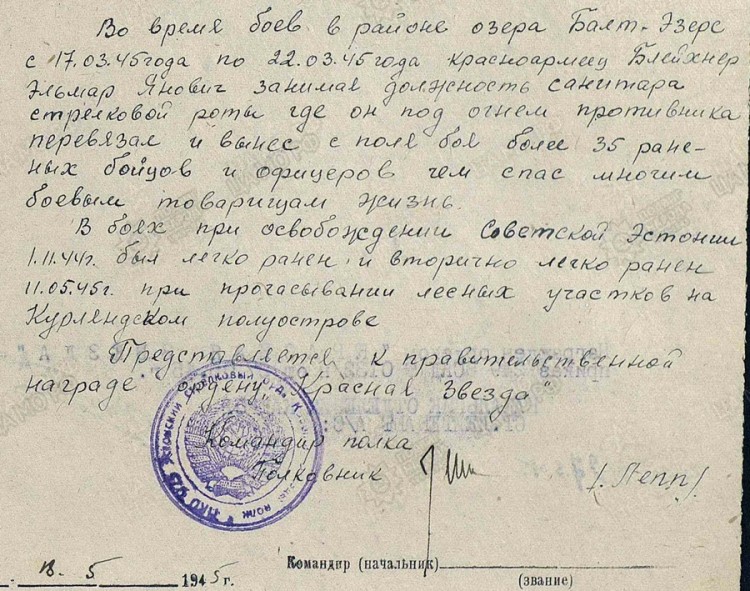 Во время боев в районе озера Балт-Эзерс
с 17.03.45 года по 22.03.45 года красноармеец Блейхнер
Эльмар Янович занимая должность санитара
стрелковой роты где он под огнем противника
перевязал и вынес с поля боя более 35 ране-
ных бойцов и офицеров чем спас многим
боевым товарищам жизнь.
В боях при освобождении Советской Эстонии
1.11.44г. был легко ранен и вторично легко ранен
11.05.45г. при прочасывании лесных участков на
Курляндском полуострове
Представляется к правительственной
награде ордену „Красная Звезда"
Командир полка
Полковник /Лепп/
Командир (начальник)
18. 5 1945 г.
(звание)